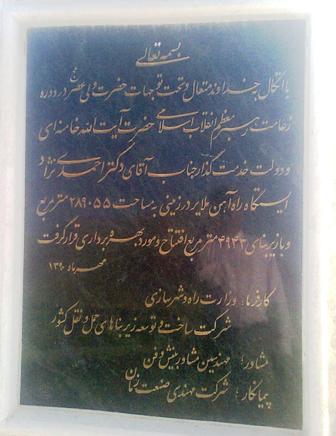 بسمه تعالی
با اتکال به خداوند متعال و تحت توجهات حضرت ولی عصر در دوره
زعامت رهبر معظم انقلاب اسلامی حضرت آیت الله خامنه ای
و دولت خدمت گذار جناب آقای دکتر احمدی نژاد
ایستگاه راه آهن ملایر در زمینی به مساحت ۲۸۹۰۵۵ مترمربع
و با زیربنای ۴۹۴۳ مترمربع افتتاح و مورد بهره برداری قرار گرفت
مهر ماه ۱۳۹۰
کارفرما : وزارت راه و شهرسازی
شرکت ساخت و توسعه زیربناهای حمل و نقل کشور
مشاور : مهندسین مشاور بینش و فن
پیمانکار : شرکت مهندسی صنعت زمان